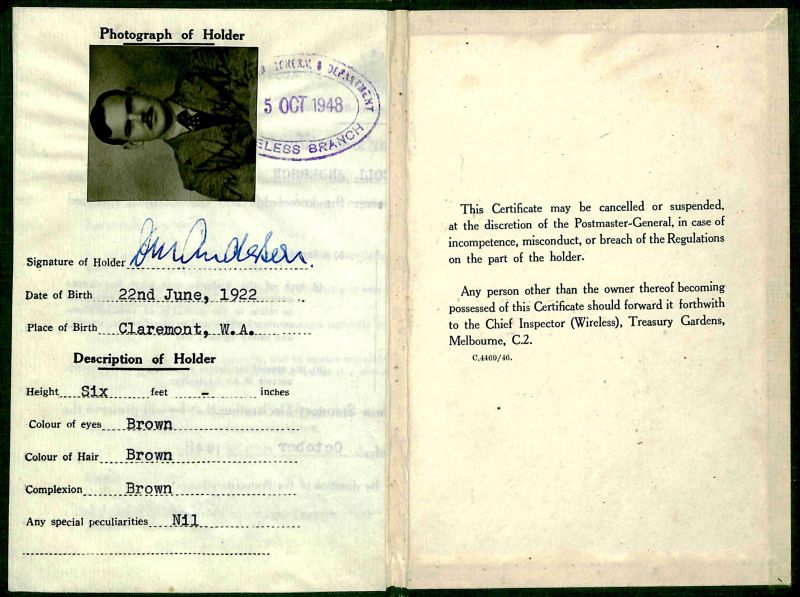 Photograph of Holder
GENERAL'S DEPARTMENT
5 OCT 1948
ELESS BRANCH
Signature of Holder DM Anderson.
Date of Birth 22nd June, 1922
Place of Birth Claremont, W.A.
Description of Holder
Height Six feet - inches
Colour of eyes Brown
Colour of Hair Brown
Complexion Brown
Any special peculiarities Nil
This Certificate may be cancelled or suspended,
at the discretion of the Postmaster-General, in case of
incompetence, misconduct, or breach of the Regulations
on the part of the holder.
Any person other than the owner thereof becoming
possessed of this Certificate should forward it forthwith
to the Chief Inspector (Wireless), Treasury Gardens,
Melbourne, C.2.
C.4469/46.